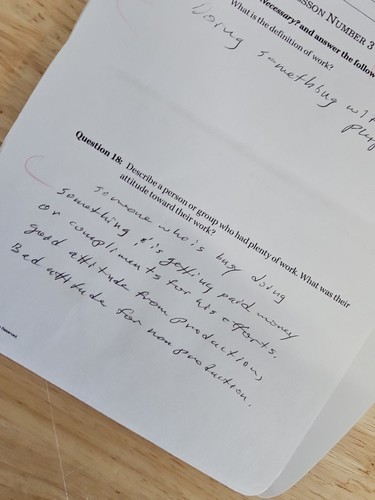 ESSON NUMBER 3
Necessary? and answer the follow
What is the definition of work?
Doing something wit
Question 18: Describe a person or group who had plenty of work. What was their
attitude toward their work?
someone who's busy doing
something, &'s getting paid money
or compliments for his efforts.
good attitude from production,
Bad attitude for non production.